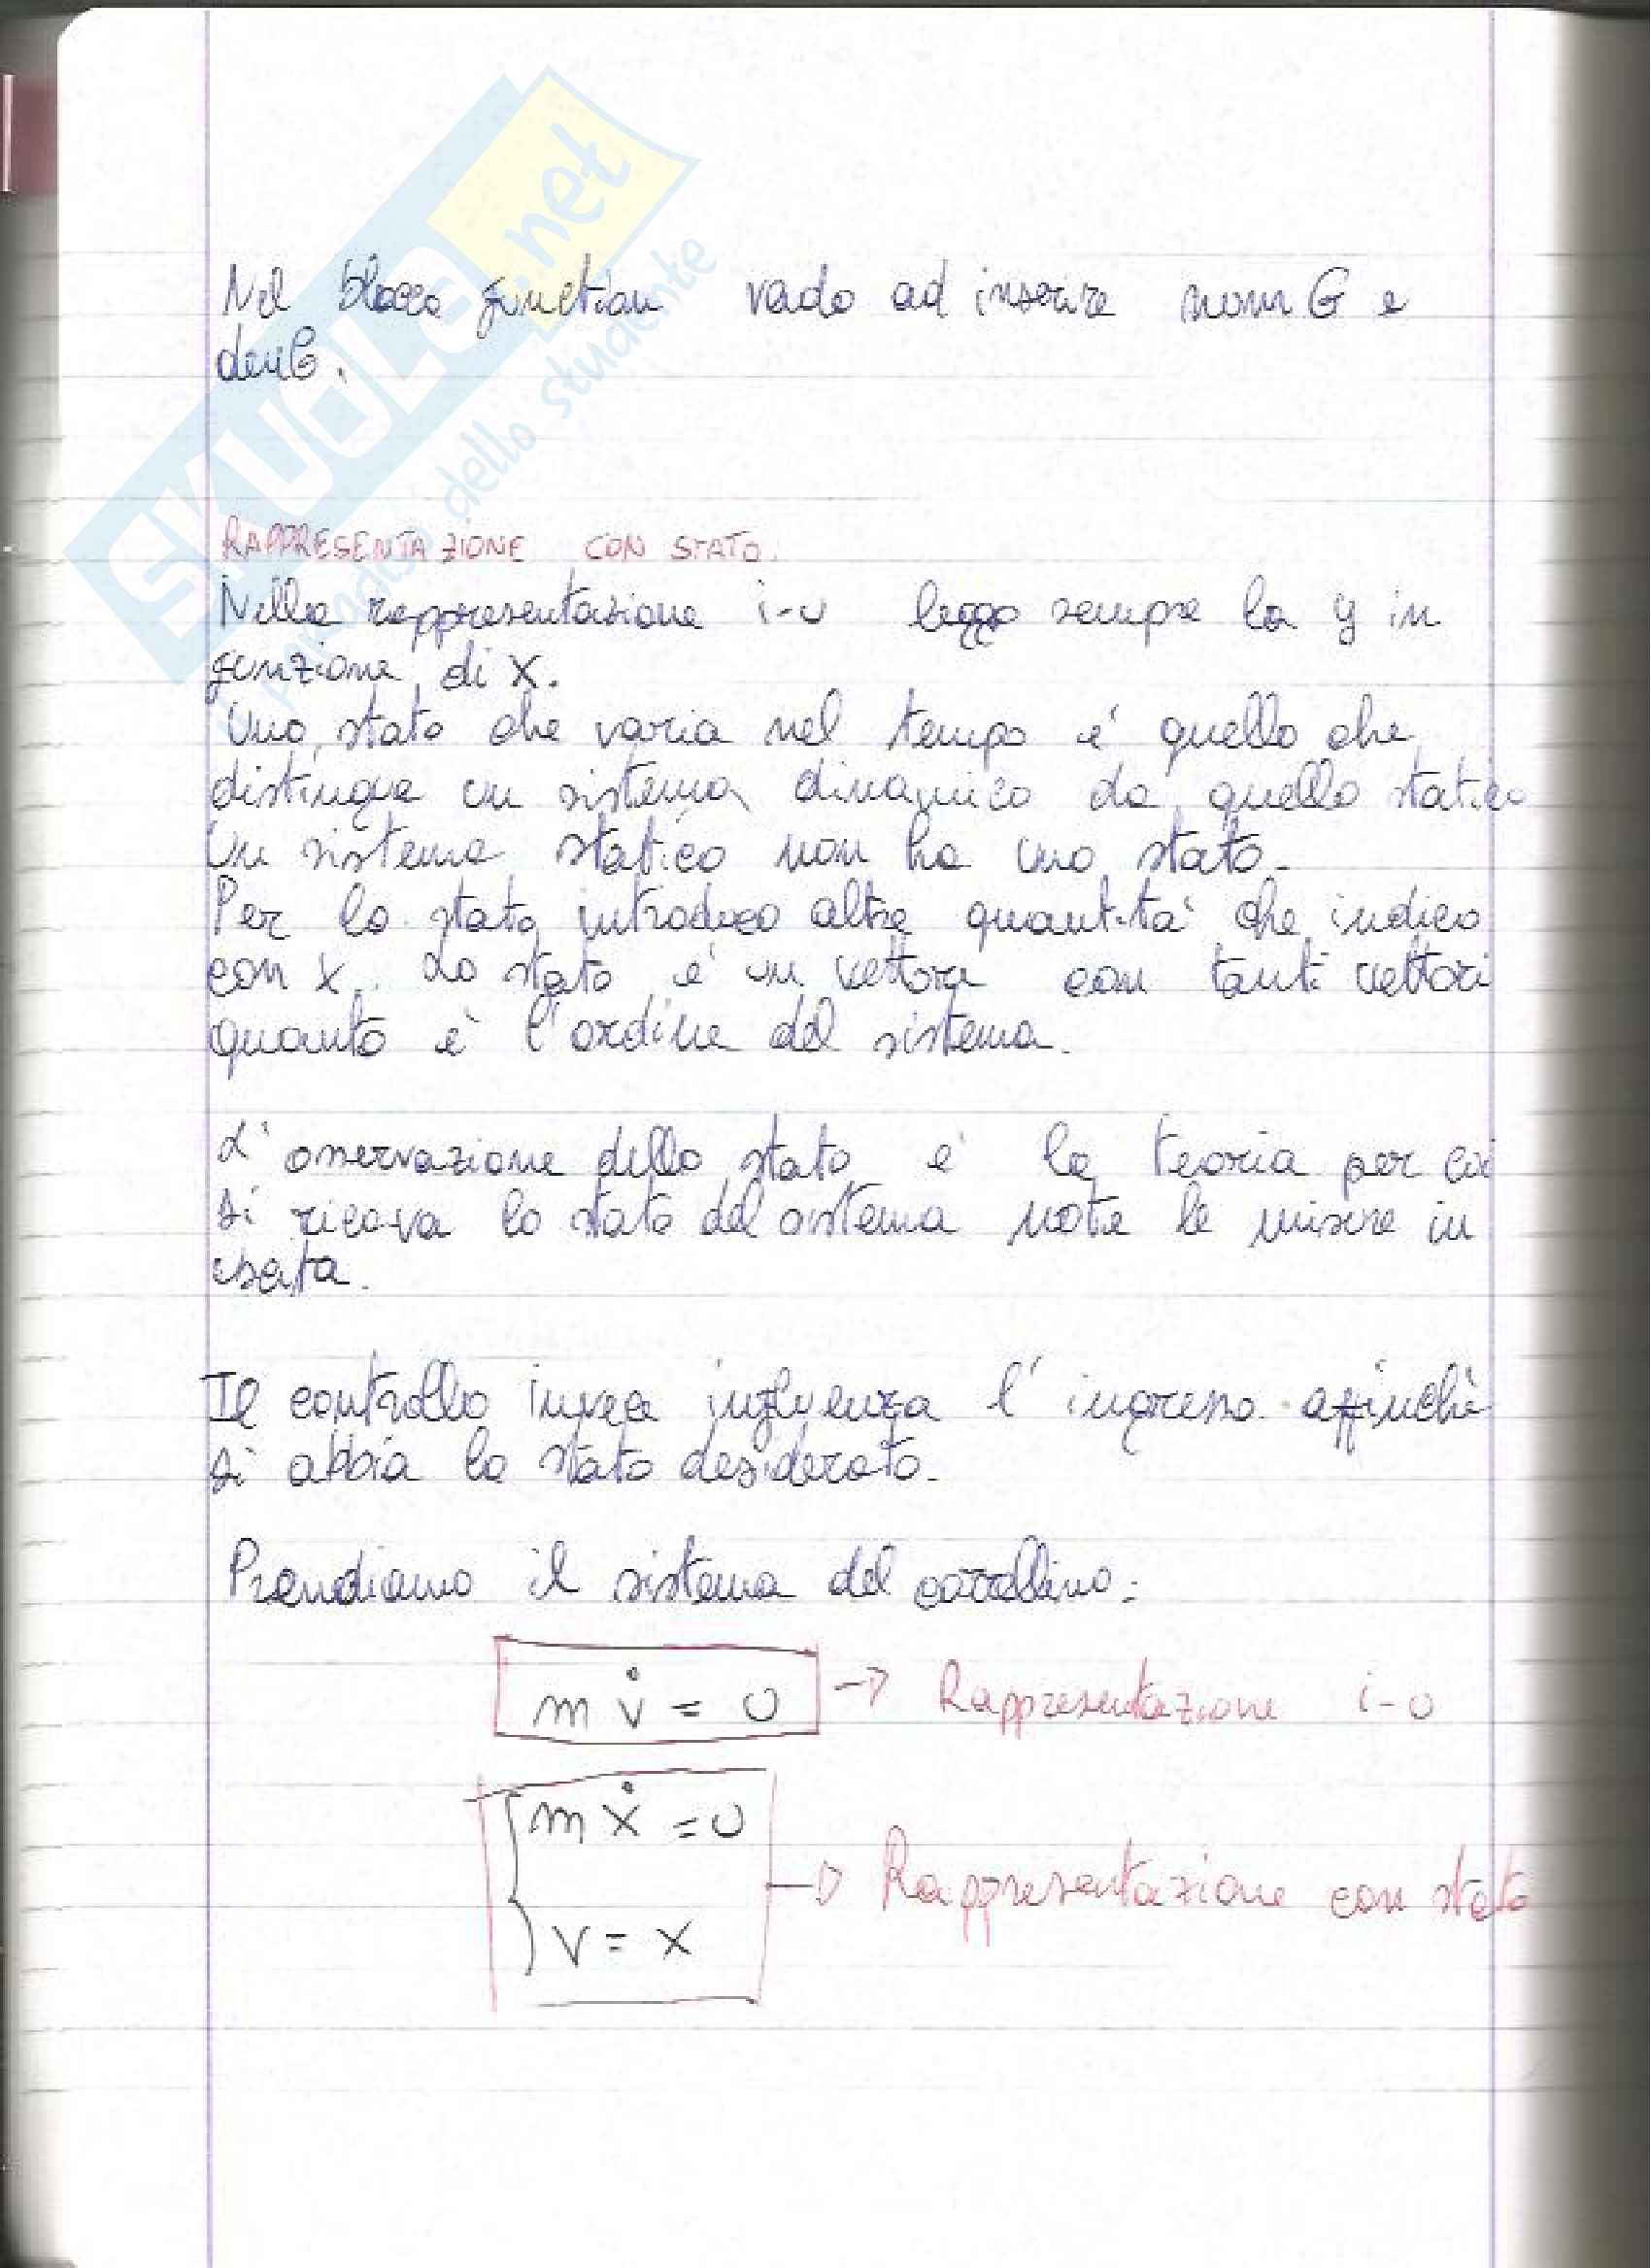 SKUOLA.net
il paradiso dello studente
Nel blocco function vado ad inserire numG e
denG.
RAPPRESENTAZIONE CON STATO.
Nella rappresentazione i-u leggo sempre la y in
funzione di x.
Uno stato che varia nel tempo é quello che
distingue un sistema dinamico da quello statico
Un sistema statico non ha uno stato.
Per lo stato introduco altre quantità che indico
con x. Lo stato é un vettore con tanti vettori
quanto è l'ordine del sistema.
L'osservazione dello stato e' la teoria per cui
si ricava lo stato del sistema note le misure in
uscita.
Il controllo invece influenza l'ingresso affinchè
si abbia lo stato desiderato.
Prendiamo il sistema del carrellino:
m v̇ = u → Rappresentazione i-u
{ m ẋ = u
→ Rappresentazione con stato
v = x